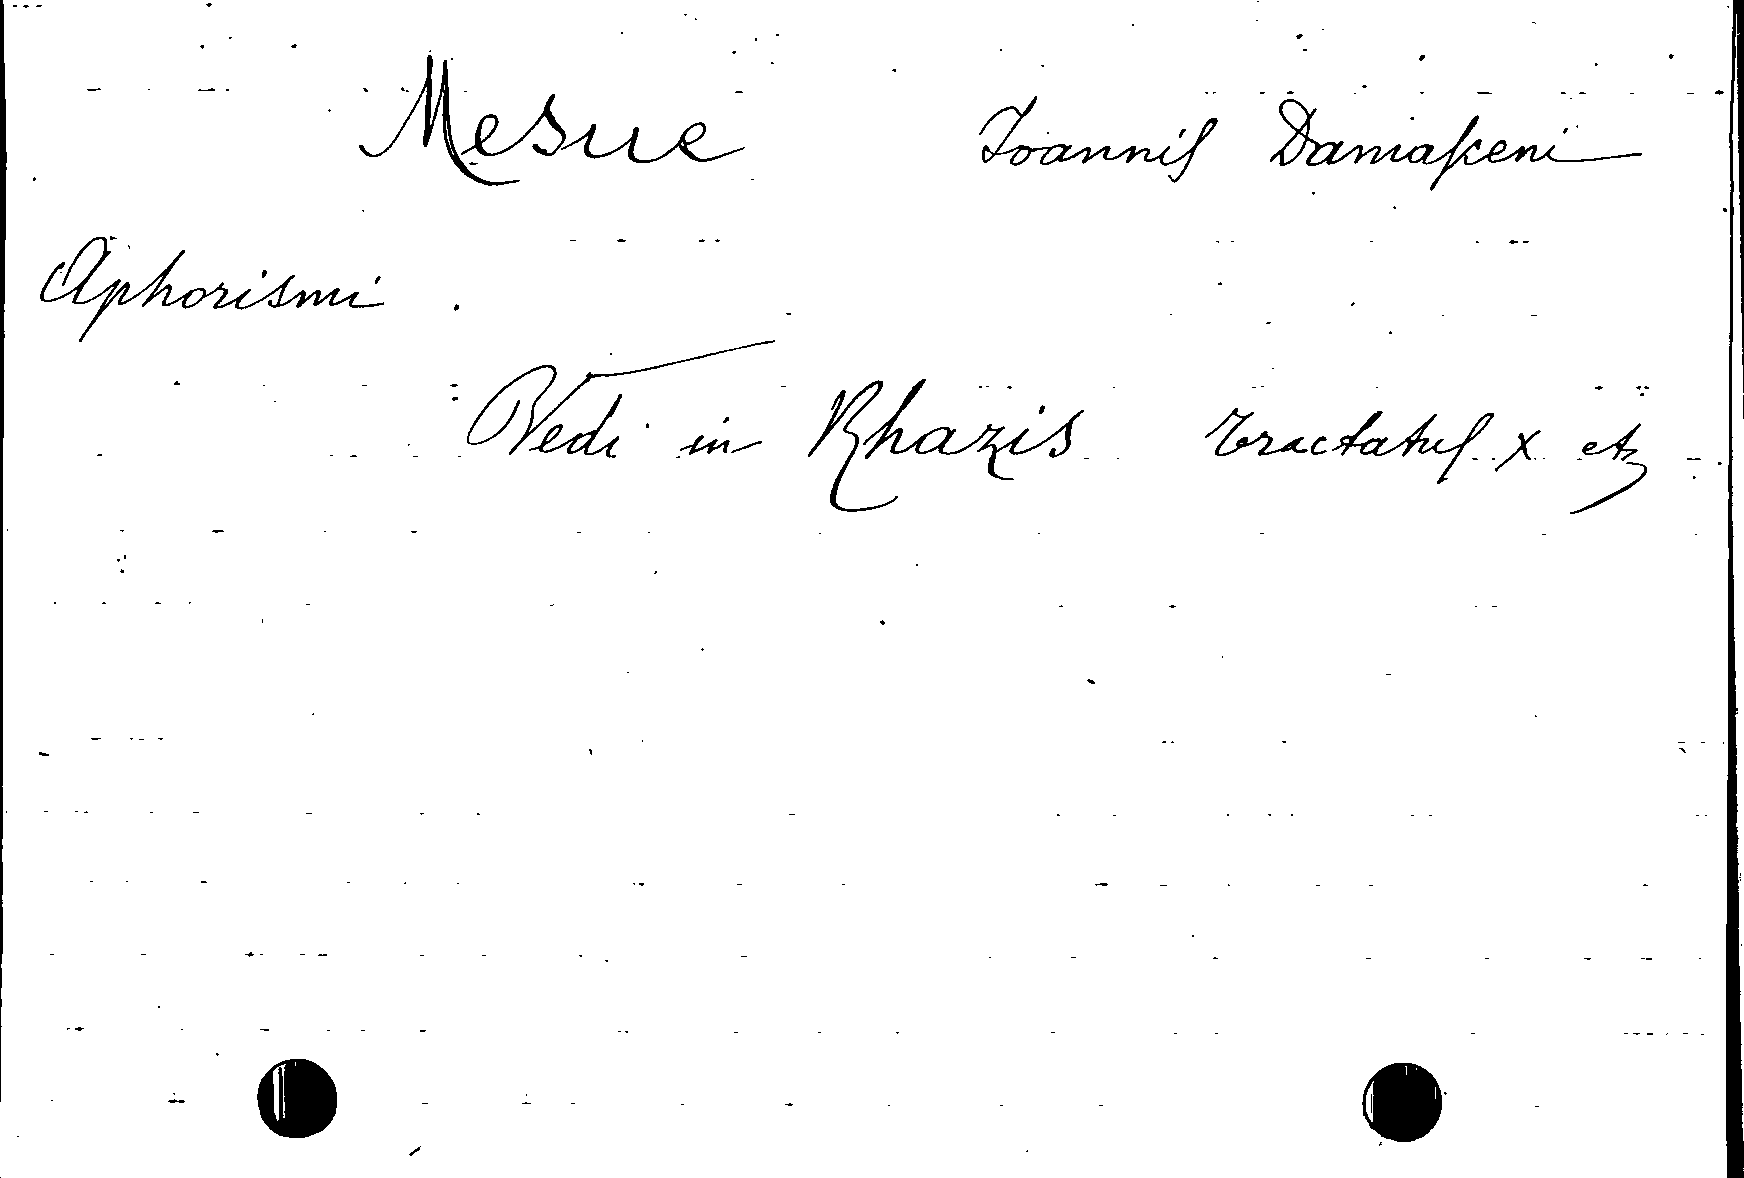 Mesue Ioannis Damasceni
Aphorismi
Vedi in Rhazis tractatus X etz